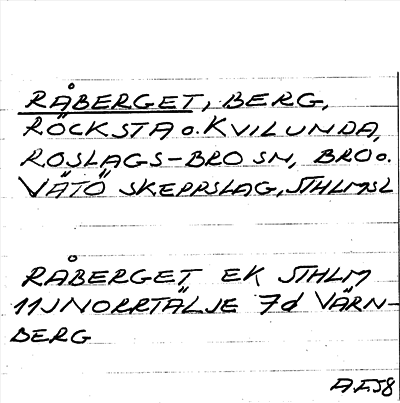 RÅBERGET, BERG,
RÖCKSTA o. KVILUNDA,
ROSLAGS-BRO SN, BRO o.
VÄTÖ SKEPPSLAG, STHLMSL
RÅBERGET EK STHLM
11J NORRTÄLJE 7d VÄRN-
BERG
AFJ8